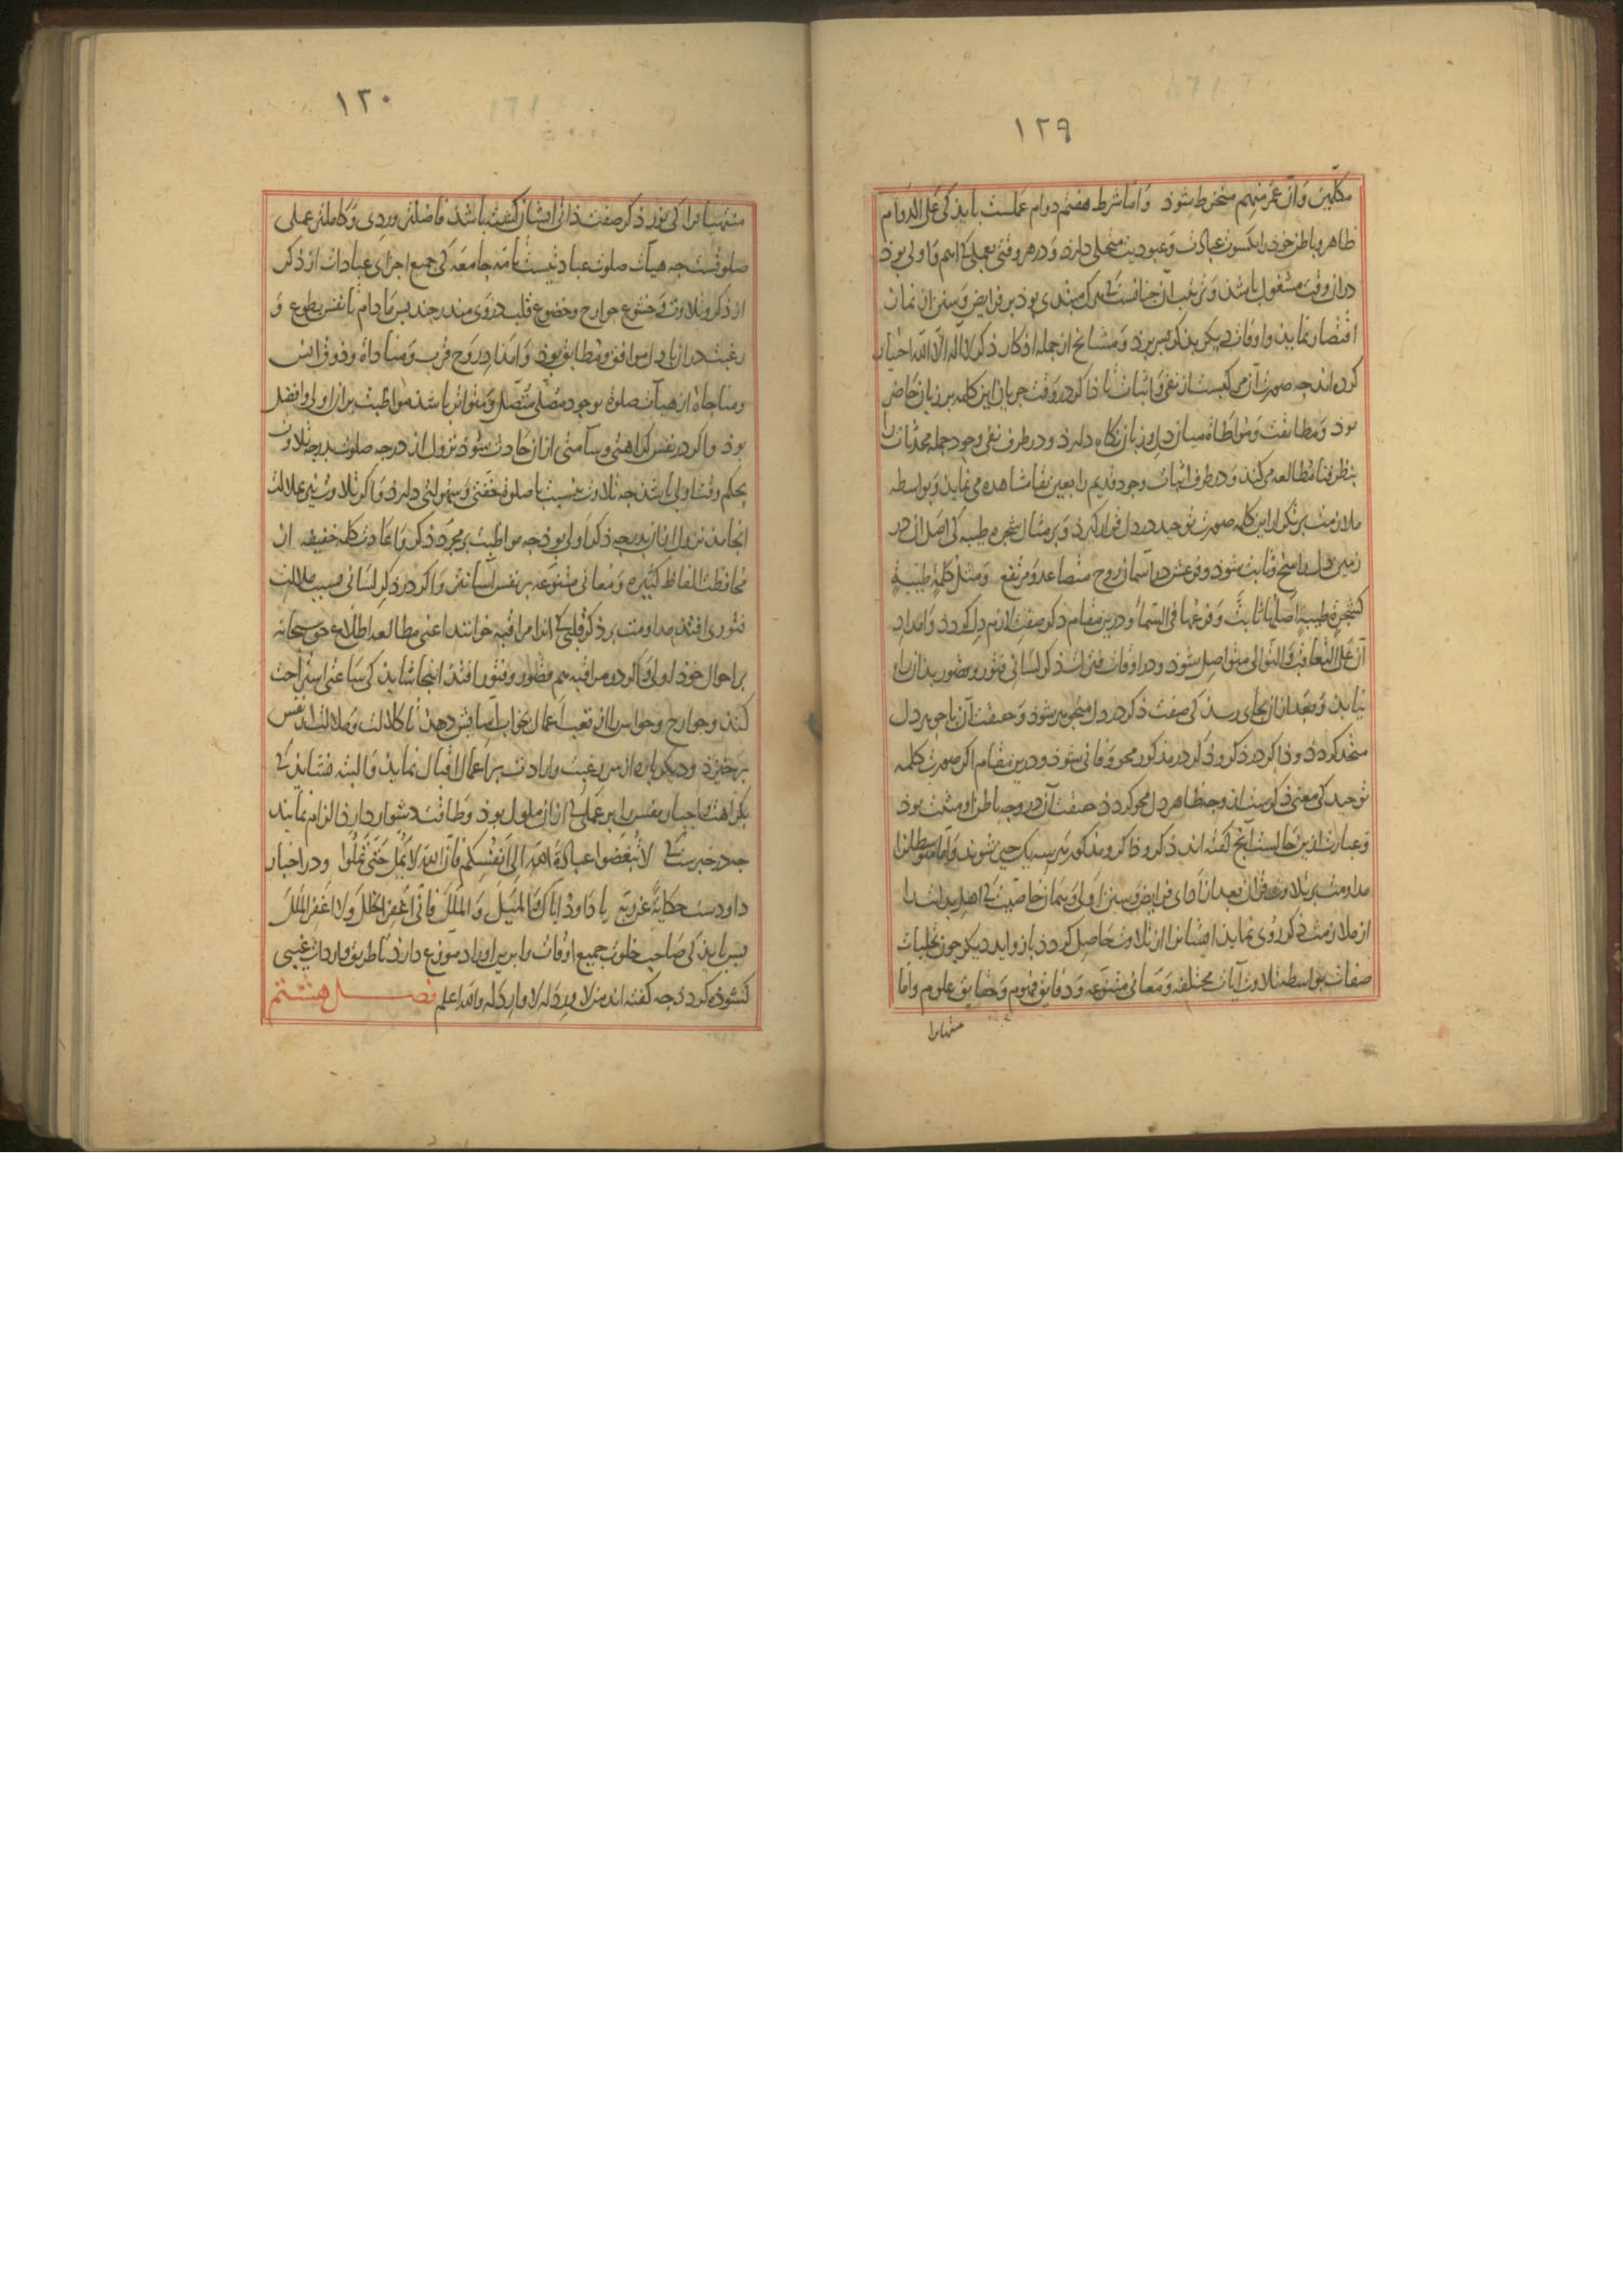 ١٢٩
مکلّفین و از عمر منهم منخرط شوذ و امّا شرط هفتم دوام عملست بایذ کی علی الدوام
ظاهر و باطن خوذ را بکسوت عبادت و عبودیت متحلی دارذ و در هر وقتی بعملی کی اهم و اولی بوذ
در ان وقت مشغول باشذ و ترتیب آن چنانست کی هرک مبتدی بوذ بر فرایض و سنن از نماز
اقتصار نمایذ و اوقات دیکر بذکر بسر برذ و مشایخ از جمله اذکار ذکر لا اله الّا الله اختیار
کرده اند چه صورت آن مرکبست از نفی و اثبات تا ذاکر در وقت جریان این کلمه بر زبان حاضر
بوذ و مطابقت و مواطاة میان دل و زبان نکاه دارذ و در طرف نفی وجود جمله محدثات را
بنظر فنا مطالعه می کند و در طرف اثبات وجود قدیم را بعین بقا مشاهده می نمایذ و بواسطه
ملازمت بر تکرار این کلمه صورت توحید در دل قرار کیرذ و بر مثال شجره طیبه کی اصل ان در
زمین دل راسخ و ثابت شوذ و فرعش در آسمان روح متصاعد و مرتفع و مثل کلمة طیبة
کشجرة طیبة اصلها ثابت و فرعها فی السماء و درین مقام ذکر صفت لازم دل کردذ و امداد
آن علی التعاقب و التوالی متواصل شوذ و در اوقات فترت ذکر لسانی فتور و قصور بذان راه
نیابذ و بعد از ان بجای رسذ کی صفت ذکر در دل متجوهر شوذ و حقیقت آن با جوهر دل
متحد کردذ و ذاکر در ذکر و ذکر در مذکور محو و فانی شوذ و درین مقام اکر صورت کلمه
توحید کی معنی ذکرست از وجه ظاهر دل محو کردذ حقیقت آن در وجه باطن او مثبت بوذ
و عبارت ازین حالست آنچ کفته اند ذکر و ذاکر و مذکور هر سه یک چیز شوند و امّا متوسطانرا
مداومت بر تلاوت قرآن بعد از ادای فرایض و سنن اولی و همان خاصیت کی اهل بدایت را
از ملازمت ذکر روی نمایذ ایشانرا از تلاوت حاصل کردذ با زواید دیکر چون تجلیات
صفات بواسطه تلاوت آیات مختلفه و معانی متنوّعه و دقایق فهوم و حقایق علوم و امّا
منتهیانرا
١٣٠
منتهیانرا کی نور ذکر صفت ذاتی ایشان کشته باشذ فاضلترین وردی و کاملترین عملی
صلوتست چه هیأت صلوت عبادتیست تامّه جامعه کی جمیع اجزای عبادات از ذکر
از ذکر و تلاوت و خشوع جوارح و خضوع قلب در وی مندرجند پس ما دام تا نفس بطوع و
رغبت در ان با دل موافق و مطابق بوذ و امداد روح قرب و مناداة و ذوق انس
و مناجاة از هیأت صلوة بوجود مصلّی متّصل و متواتر باشذ مواظبت بران اولی و افضل
بوذ و اکر در نفس کراهتی و سآمتی از ان حادث شوذ نزول از درجه صلوت بدرجه تلاوت
بحکم وقت اولی باشذ چه تلاوت بنسبت با صلوة خفّتی و سهولتی دارذ و اکر تلاوت نیز بملالت
انجامذ نزول از ان بدرجه ذکر اولی بوذ چه مواظبت بر مجرّد ذکر و اعادت کلمه خفیفه از
محافظت الفاظ کثیره و معانی متنوّعه بر نفس آسانتر و اکر در ذکر لسانی بسبب ملالت
فتوری افتذ مداومت بر ذکر قلبی کی انرا مراقبه خوانند اعنی مطالعه اطلاع حق سبحانه
بر احوال خوذ اولی و اکر در مراقبه هم قصور و فتور افتذ اینجا شایذ کی ساعتی استراحت
کند و جوارح و حواس را از تعب اعمال بخواب آسایش دهذ تا کلالت و ملالت از نفس
برخیزذ و دیکر باره از سر رغبت و ارادت بر اعمال اقبال نمایذ و البته نشایذ کی
بکراهت و اجبار نفس را بر عملی کی از ان ملول بوذ و طاقت دشوار دارذ الزام نمایند
چه در خبرست کی لا تبغضوا عبادة الله الی انفسکم فانّ الله لا یملّ حتّی تملّوا و در اخبار
داودست حکایة عن ربّه یا داود ایاک و المیل و الملل فانّی اغفر الخلل و لا اغفر الملل
پس بایذ کی صاحب خلوت جمیع اوقات را برین اوراد موزّع دارذ تا طریق واردات غیبی
کشوذه کردذ چه کفته اند من لا ورد له لا وارد له و الله اعلم فصل هشتم